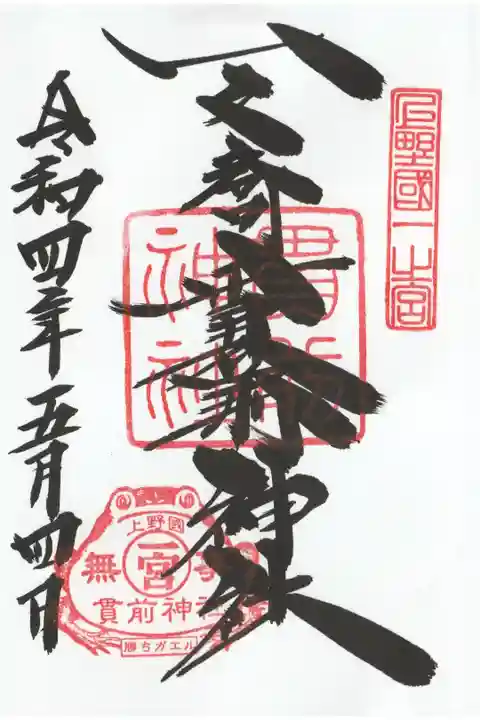 上野國一之宮
一之宮貫前神社
貫前
神社
令和四年五月四日
上野國
一宮
無事
貫前神社
勝ちガエル